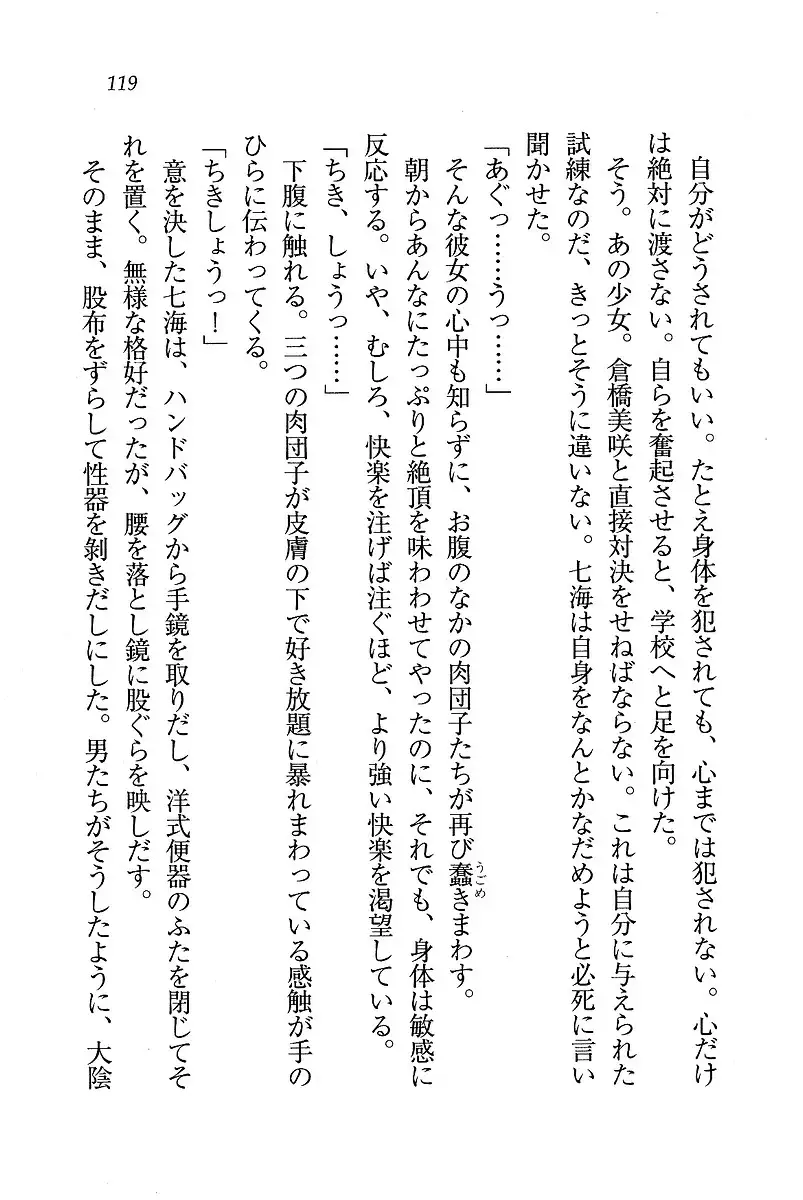 119
自分がどうされてもいい。たとえ身体を犯されても、心までは犯されない。心だけ
は絶対に渡さない。自らを奮起させると、学校へと足を向けた。
そう。あの少女。倉橋美咲と直接対決をせねばならない。これは自分に与えられた
試練なのだ、きっとそうに違いない。七海は自身をなんとかなだめようと必死に言い
聞かせた。
「あぐっ……うっ……」
そんな彼女の心中も知らずに、お腹のなかの肉団子たちが再び蠢きまわす。
うごめ
朝からあんなにたっぷりと絶頂を味わわせてやったのに、それでも、身体は敏感に
反応する。いや、むしろ、快楽を注げば注ぐほど、より強い快楽を渇望している。
「ちき、しょうっ……」
下腹に触れる。三つの肉団子が皮膚の下で好き放題に暴れまわっている感触が手の
ひらに伝わってくる。
「ちきしょうっ！」
意を決した七海は、ハンドバッグから手鏡を取りだし、洋式便器のふたを閉じてそ
れを置く。無様な格好だったが、腰を落とし鏡に股ぐらを映しだす。
そのまま、股布をずらして性器を剝きだしにした。男たちがそうしたように、大陰